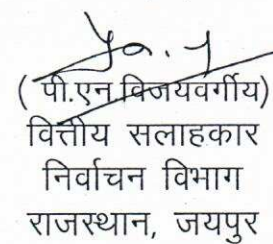 ( पी.एन विजयवर्गीय)
वित्तीय सलाहकार
निर्वाचन विभाग
राजस्थान, जयपुर